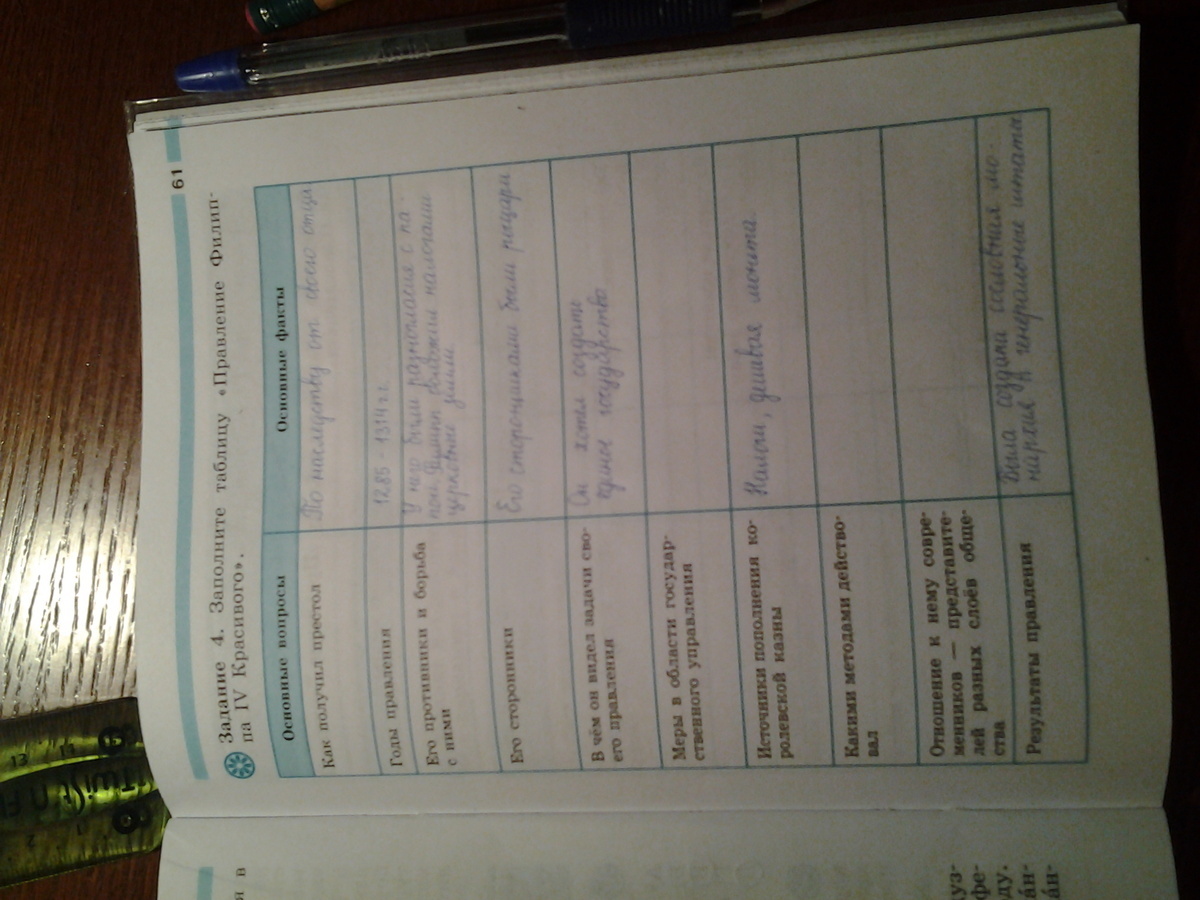 61
Задание 4. Заполните таблицу «Правление Филип-
па IV Красивого».
Основные вопросы
Основные факты
Как получил престол
По наследству от своего отца
Годы правления
1285 - 1314 гг.
Его противники и борьба
с ними
У него были разногласия с па-
пой. Филипп обложил налогами
церковные земли
Его сторонники
Его сторонниками были рыцари
В чём он видел задачи сво-
его правления
Он хотел создать
единое государство
Меры в области государ-
ственного управления
Источники пополнения ко-
ролевской казны
Налоги, дешёвая монета
Какими методами действо-
вал
Отношение к нему совре-
менников — представите-
лей разных слоёв обще-
ства
Результаты правления
Была создана сословная мо-
нархия и генеральные штаты
я в
уз-
фе-
ду.
а́н-
а́н-
Twist n
13